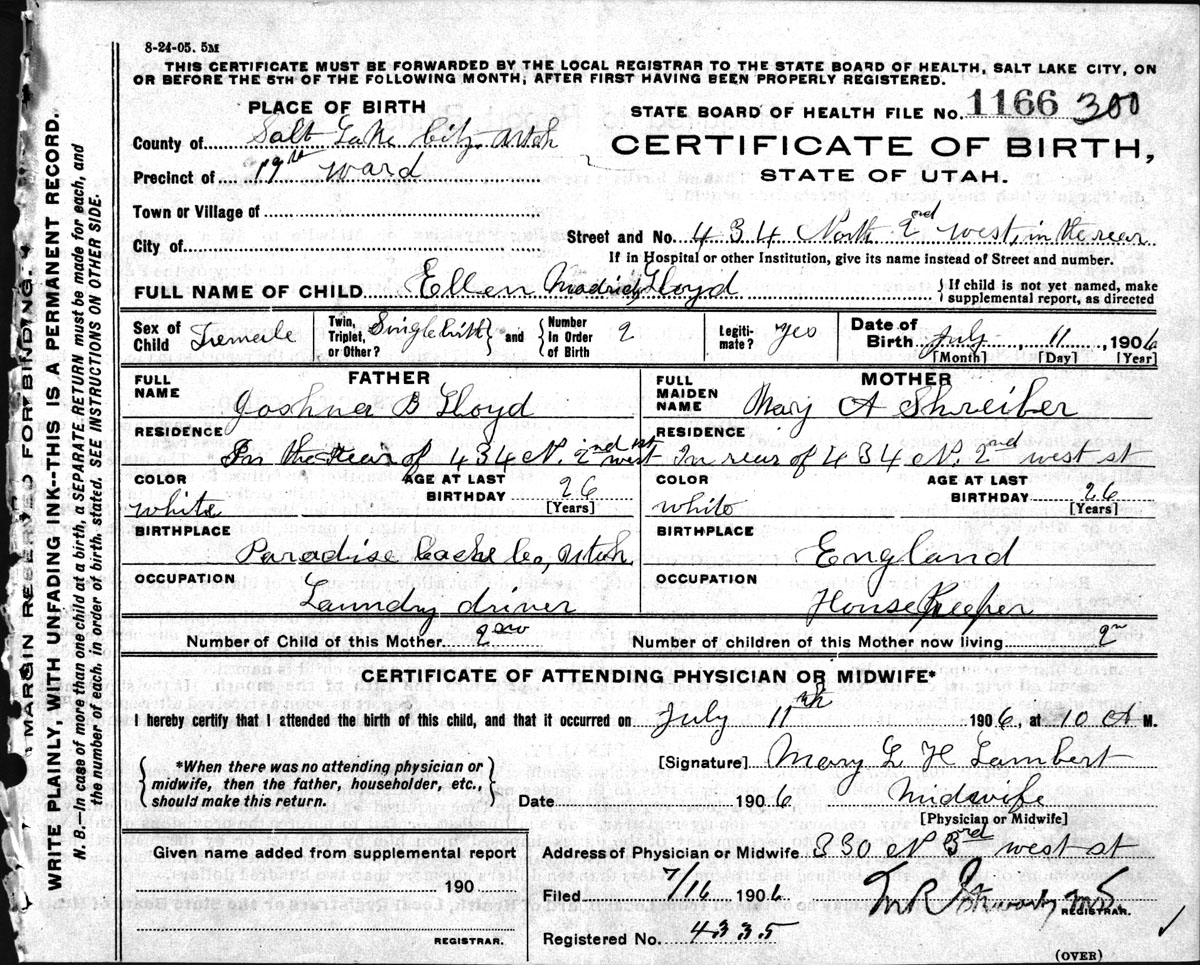 8-24-05. 5M
THIS CERTIFICATE MUST BE FORWARDED BY THE LOCAL REGISTRAR TO THE STATE BOARD OF HEALTH, SALT LAKE CITY, ON
OR BEFORE THE 5TH OF THE FOLLOWING MONTH, AFTER FIRST HAVING BEEN PROPERLY REGISTERED.
PLACE OF BIRTH
STATE BOARD OF HEALTH FILE No. 1166 300
County of Salt Lake City Utah
CERTIFICATE OF BIRTH,
Precinct of 19th ward
STATE OF UTAH.
Town or Village of
City of
Street and No. 434 North 2nd west, in the rear
If in Hospital or other Institution, give its name instead of Street and number.
FULL NAME OF CHILD Ellen Lloyd
{ If child is not yet named, make
supplemental report, as directed
Sex of Child Femeile
Twin, Triplet, or Other? Single birth } and { Number In Order of Birth 2
Legiti- mate? yes
Date of Birth July 11 1906
[Month] [Day] [Year]
FATHER
FULL NAME Joshua B Lloyd
RESIDENCE
In the rear of 434 N. 2nd west st
COLOR white
AGE AT LAST BIRTHDAY 26 [Years]
BIRTHPLACE
Paradise Cache Co, Utah
OCCUPATION
Laundry driver
MOTHER
FULL MAIDEN NAME Mary A Shreiber
RESIDENCE
In rear of 434 N. 2nd west st
COLOR white
AGE AT LAST BIRTHDAY 26 [Years]
BIRTHPLACE
England
OCCUPATION
House Keeper
Number of Child of this Mother 2nd
Number of children of this Mother now living 2
CERTIFICATE OF ATTENDING PHYSICIAN OR MIDWIFE*
I hereby certify that I attended the birth of this child, and that it occurred on July 11th 1906, at 10 A M.
{ *When there was no attending physician or
midwife, then the father, householder, etc.,
should make this return. }
[Signature] Mary L H Lambert
Date 1906 Midwife
[Physician or Midwife]
Given name added from supplemental report
190
REGISTRAR.
Address of Physician or Midwife 330 N 3rd west st
Filed 7/16 1906
REGISTRAR.
Registered No. 4335
(OVER)
MARGIN RESERVED FOR BINDING.
WRITE PLAINLY, WITH UNFADING INK--THIS IS A PERMANENT RECORD.
N. B.—In case of more than one child at a birth, a SEPARATE RETURN must be made for each, and
the number of each, in order of birth, stated. SEE INSTRUCTIONS ON OTHER SIDE.